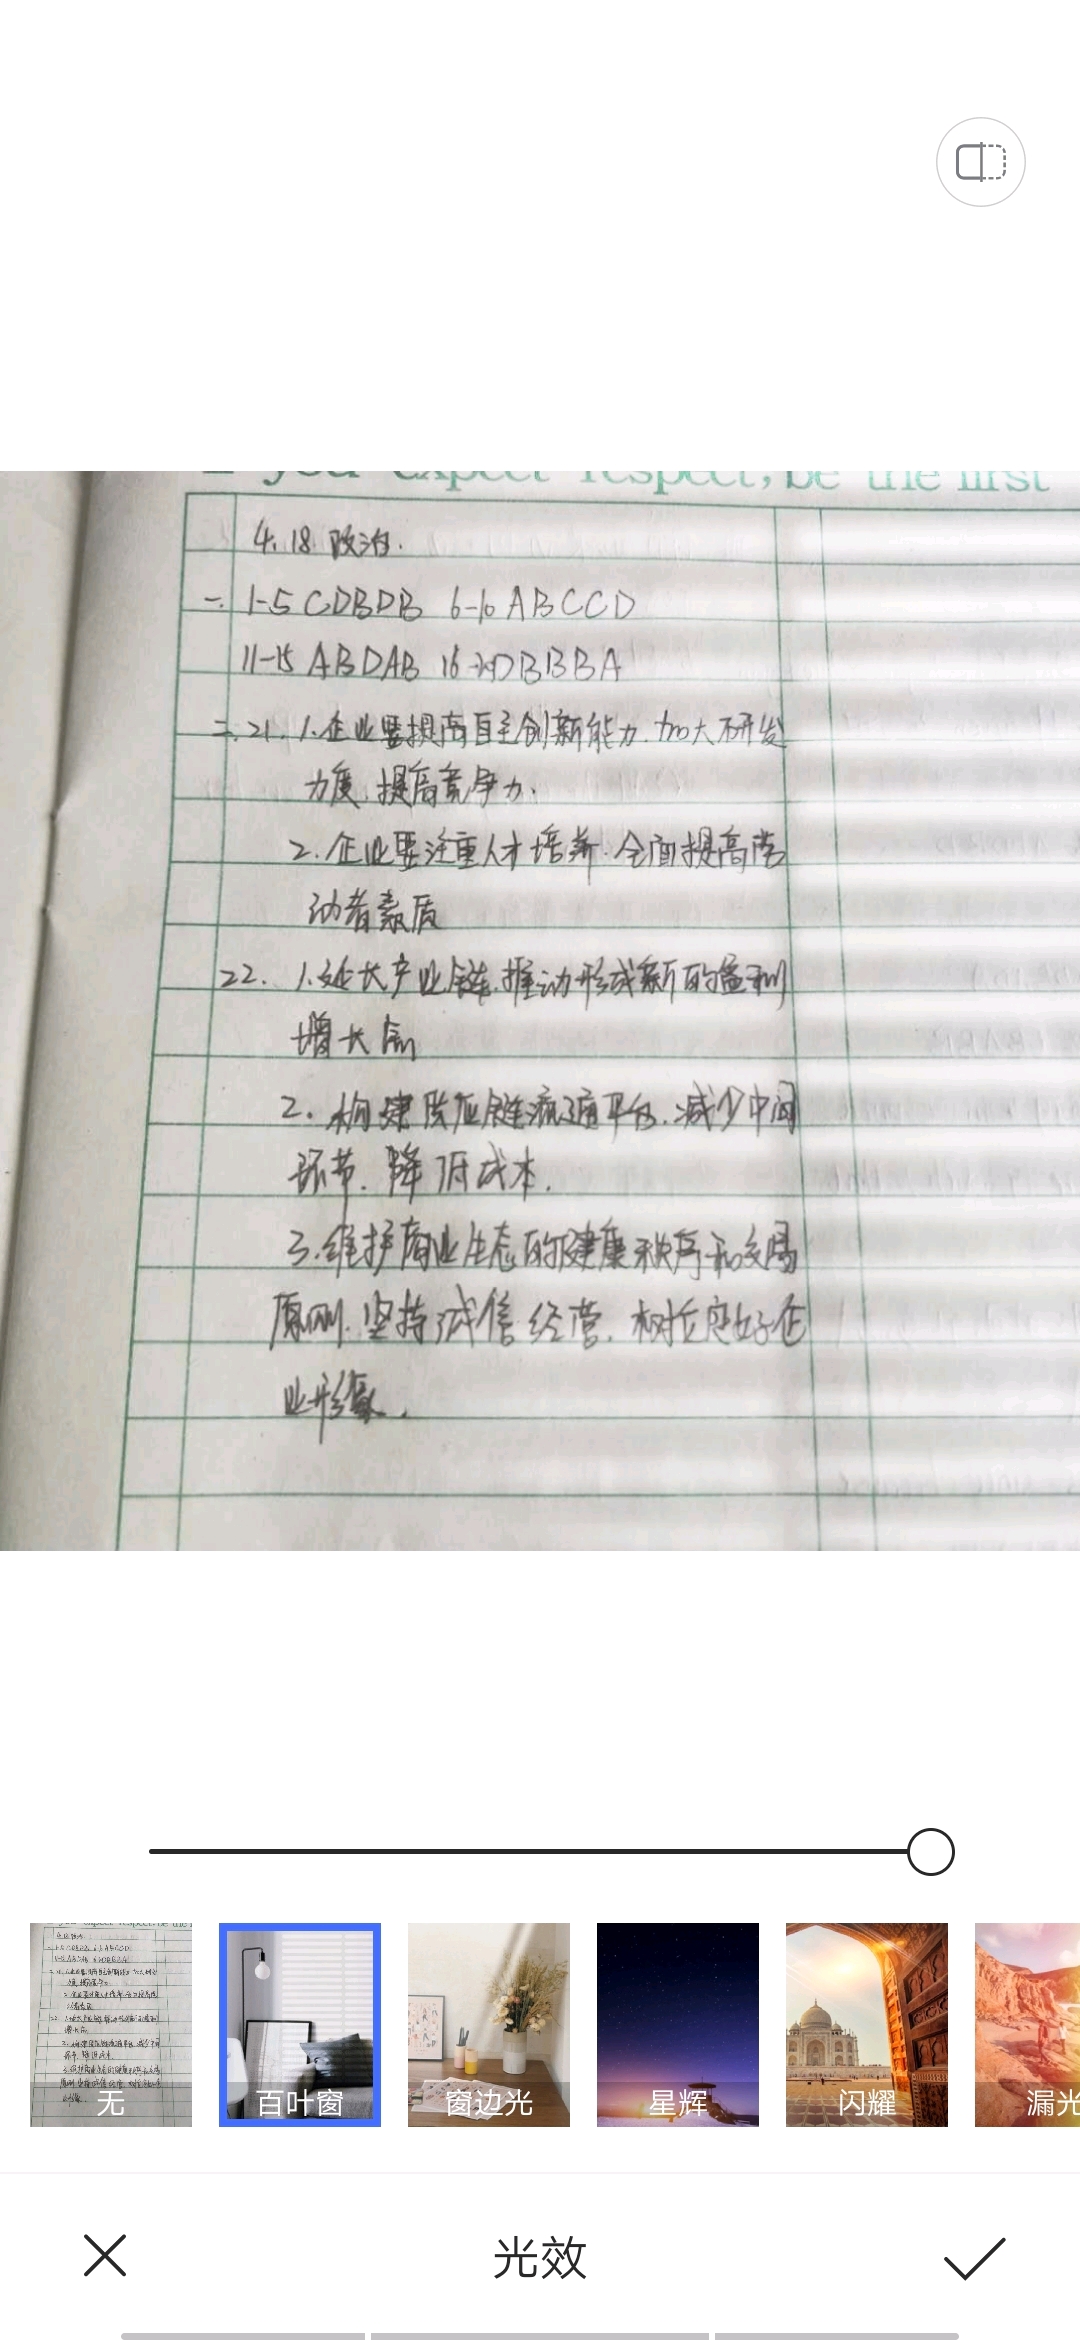 you expect respect, be the first
4.18 政治.
一. 1-5 CDBDB 6-10 ABCCD
11-15 ABDAB 16-20 DBBBA
二.21. 1.企业要提高自主创新能力.加大研发
力度.提高竞争力.
2.企业要注重人才培养.全面提高劳
动者素质
22. 1.延长产业链.推动形成新的盈利
增长点
2.构建供应链流通平台.减少中间
环节.降低成本.
3.维护商业生态的健康秩序和交易
原则.坚持诚信经营.树立良好企
业形象.
无
百叶窗
窗边光
星辉
闪耀
漏光
光效